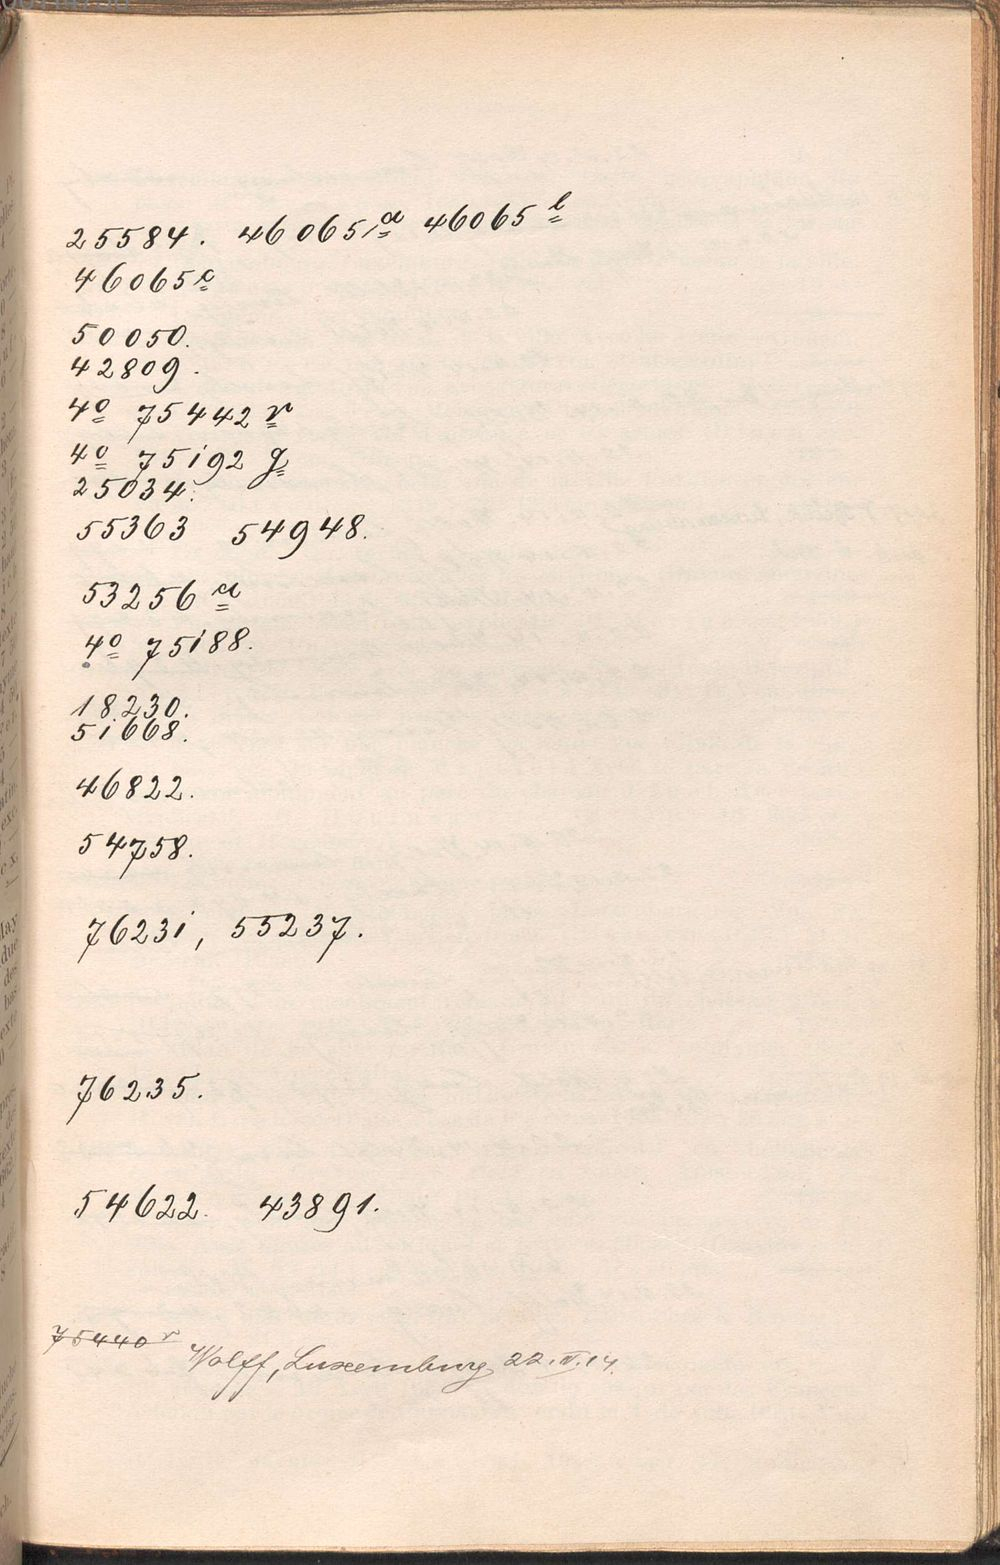 25584. 46065a 46065b
46065c
50050.
42809.
4o 75442 r
4o 75192 g
25034.
55363 54948.
53256 a
4o 75188.
18230.
51668.
46822.
54758.
76231, 55237.
76235.
54622. 43891.
75440 r
Wolff, Luxemburg 22.IV.14.